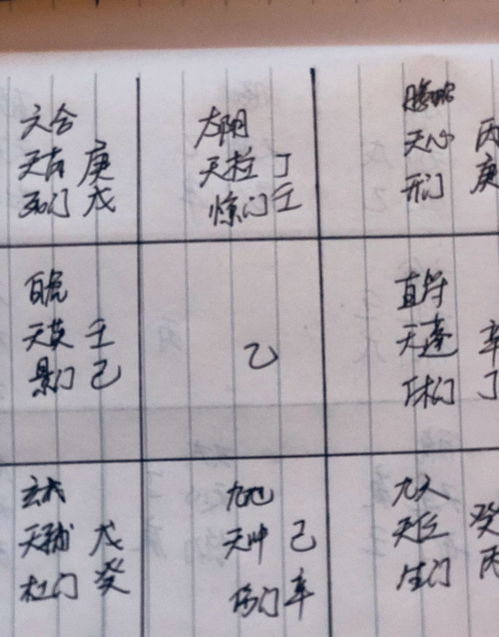 六合
天芮 庚
死门 戊
太阴
天柱 丁
惊门 壬
腾蛇
天心 丙
开门 庚
白虎
天英 壬
景门 己
乙
直符
天蓬 辛
休门 丁
玄武
天辅 戊
杜门 癸
九地
天冲 己
伤门 辛
九天
天任 癸
生门 丙